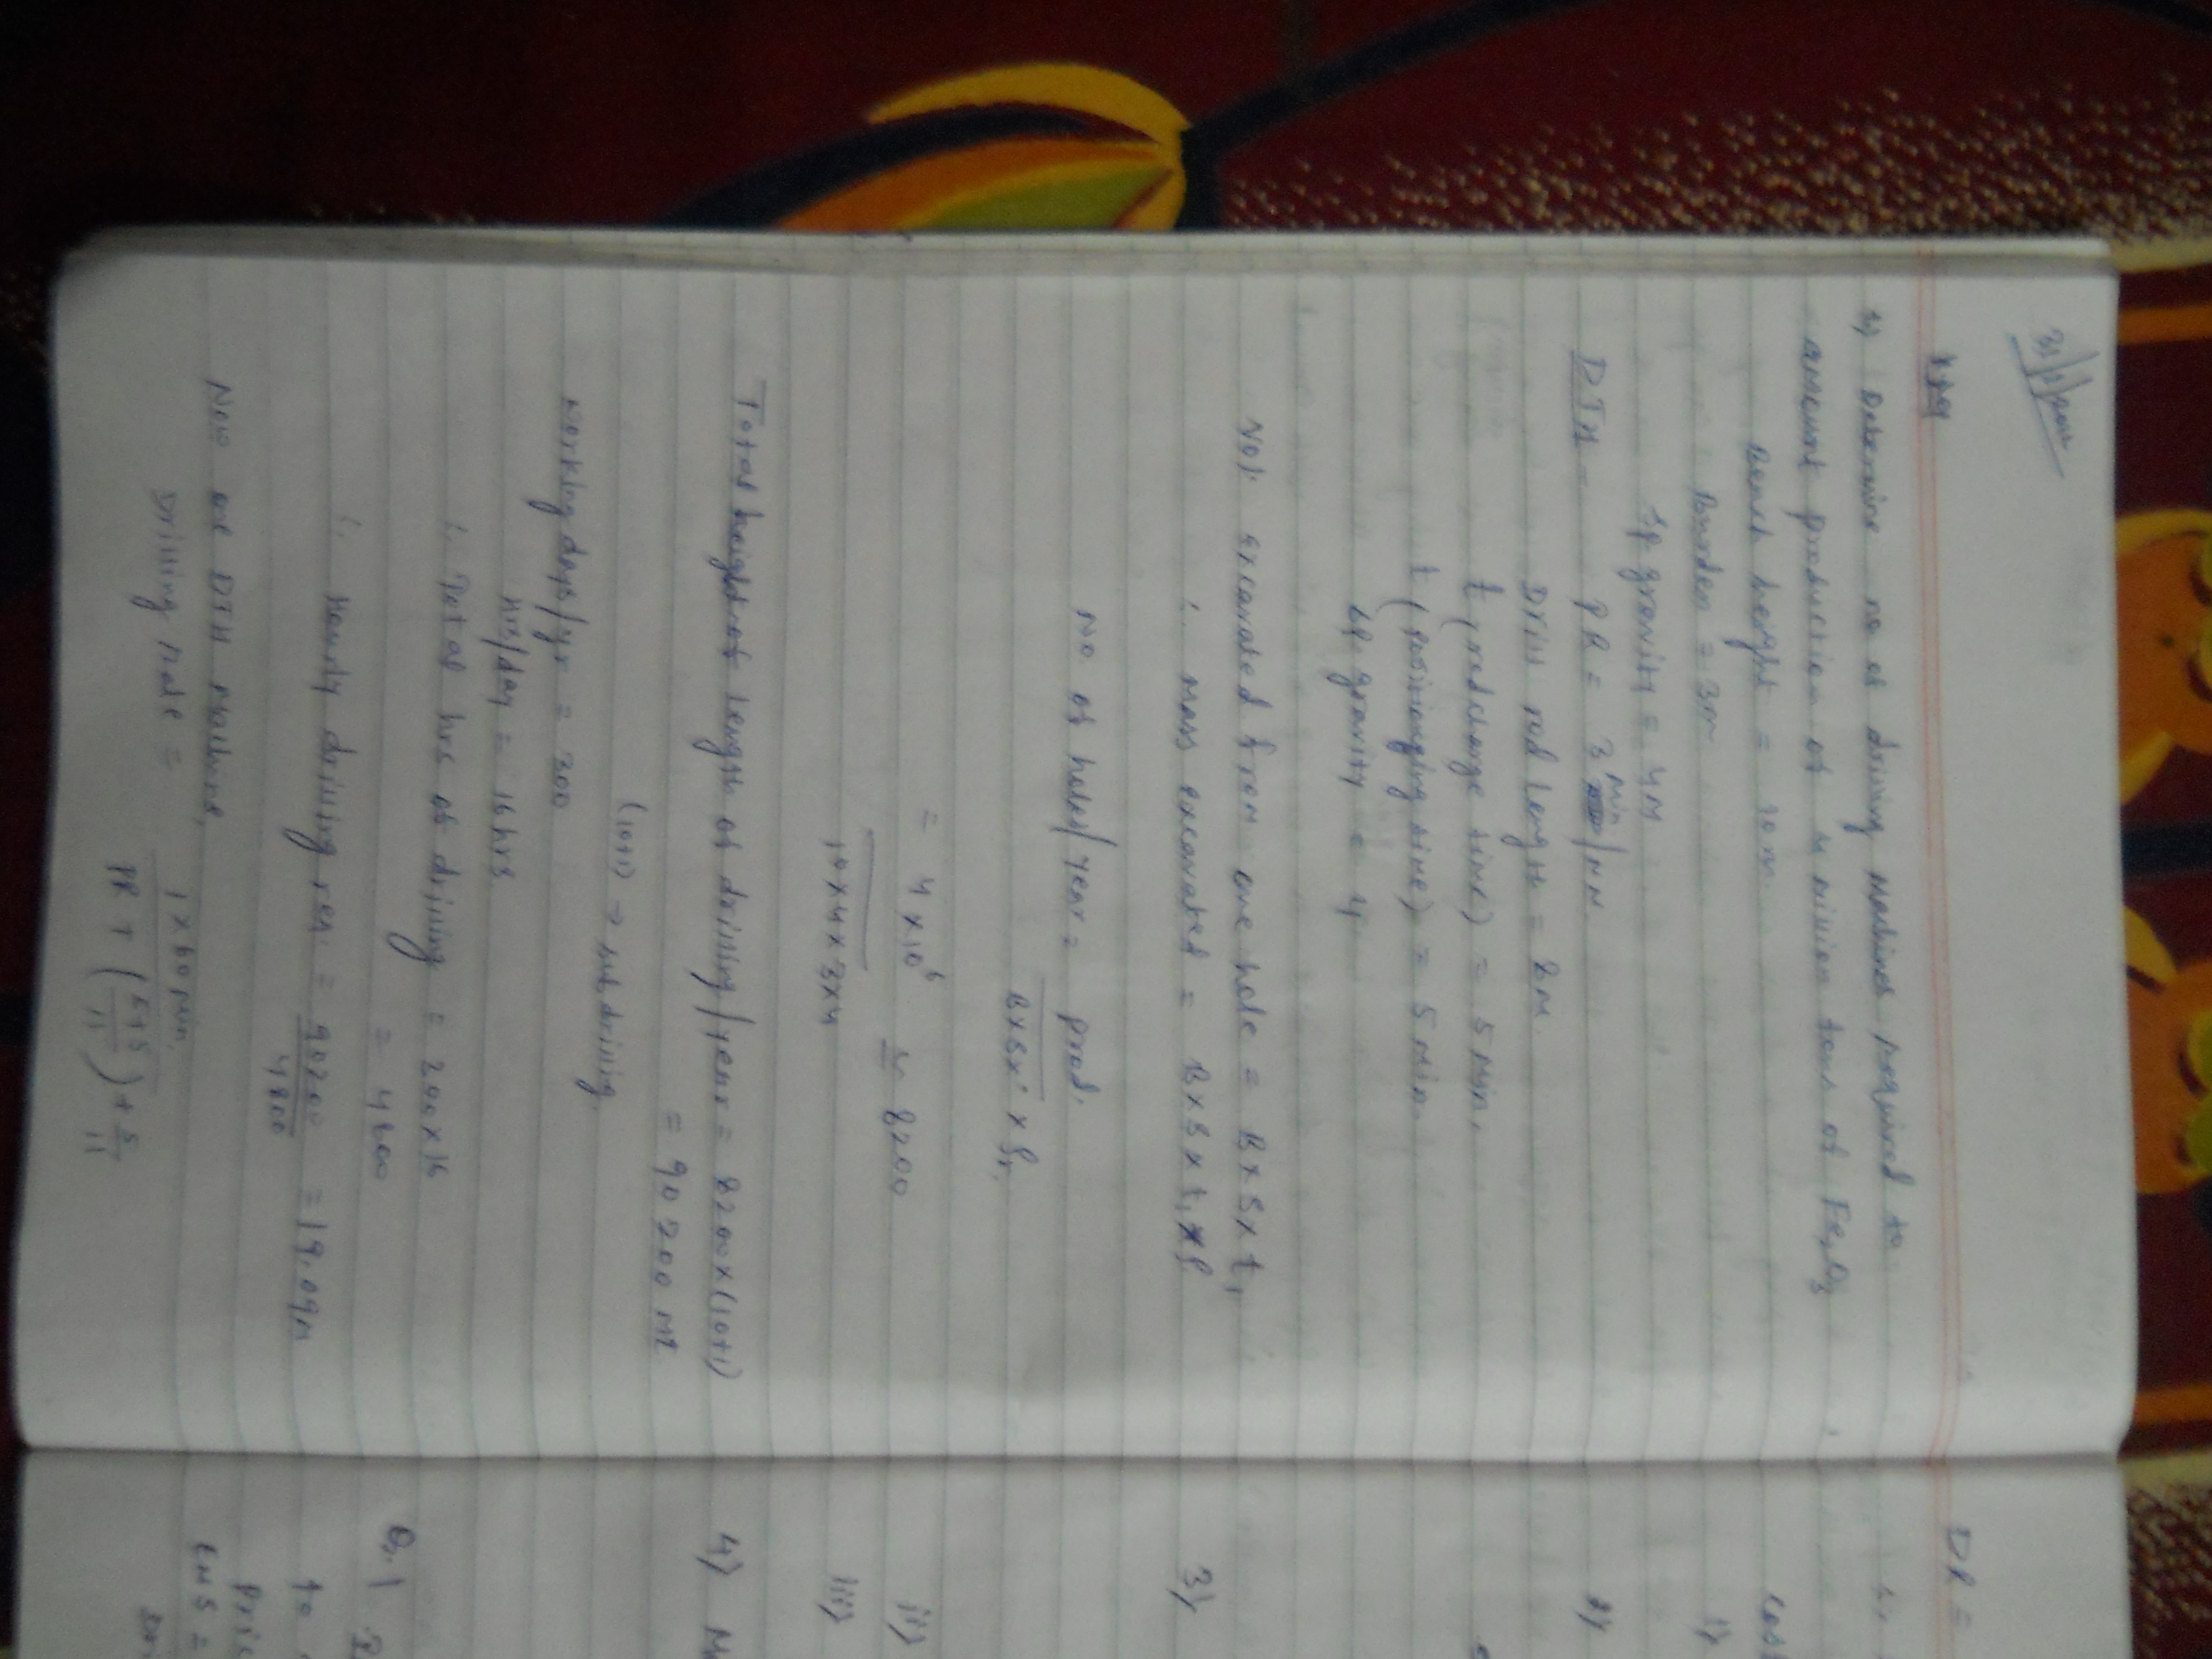 1) Determine no of drilling machines required to
amount production of 4 million tons of Fe2O3
Bench height = 10 m.
Burden = 3m
Sp gravity = 4M
DTH - PR = 3 min/M
Drill rod length = 8M
t (rod change time) = 5 Min,
t (positionging time) = 5 Min.
sp. gravity = 4
Vol. excavated from one hole = B x S x t,
∴ mass excavated = B x S x t, x ρ
No of holes/year = prod.
BxSx x ρr,
= 4 x 10^6 ≃ 8200
10 x 4 x 3 x 4
Total height of length of drilling/year = 8200 x (10+1)
= 90 200 M
(10+1) → subdrilling.
working days/yr = 300
hrs/day = 16 hrs
∴ Total hrs of drilling = 200 x 16
= 4800
∴ Hourly drilling req. = 90200 = 19.09M
4800
Now one DTH Machine,
Drilling rate = 1 x 60 Min,
PR + (5+5 / 11) + 5/11
DR =
cost
1)
2)
3)
ii)
iii)
4) M
Q.1
to